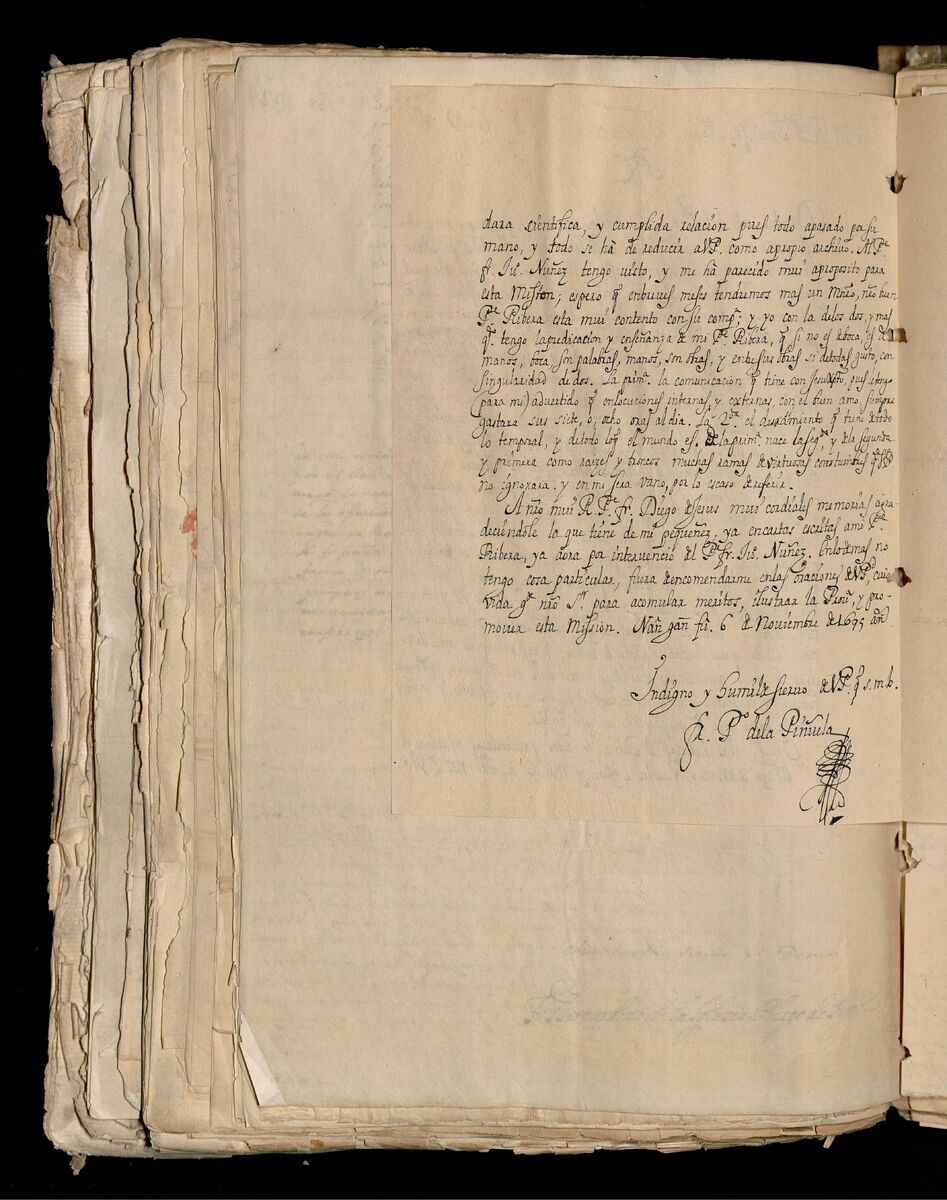 dara scientifica, y cumplida relacion pues todo apasado por su
mano, y todo se hà de reducir aVP. como apropio archivo. Al Pe.
fr. Juº. Nuñez tengo visto, y me hà parecido mui aproposito para
esta Mission; espero q̃ enbreves meses tendremos mas un Mñro, nr̃o buen
Pe. Ribera esta mui contento con su compº; y yo con la delos dos, y mas
qº. tengo lapredicacion y enseñanza de mi Pe. Ribera, q̃ si no es deboca, es de
manos, boca son palabras, manos, son obras, y entresus obras si detodas gusto, con
singularidad de dos. La primª. la comunicacion q̃ tiene con Jesuchr̃sto, pues tengo
(para mi) advertido q̃ enlocuciones internas, y externas, con el buen amo, siempre
gastara sus siete, o, ocho oras al dia. La 2da. el desasimiento q̃ tiene detodo
lo temporal, y detodo loq̃ el mundo es. Dela primª. nace la segda. y dela segunda
y primera como raizes y troncos muchas ramas devirtuosas constumbres q̃ VP
no ignorara. y en mi sera vano, por lo escaso dereferir.
A nr̃o mui R. Pe. fr. Diego deJesus mui cordiales memorias agra-
deciendole la que tiene de mi pequeñez, ya encartas escritas ami Pe.
Ribera, ya aora por intervenciõ del Pe. fr. Juº. Nuñez. Enlodemas no
tengo cosa particular, fuera deencomendarme enlas oraciones deVPd, cuia
vida gue nr̃o Sr. para acomular meritos, ilustrar la Provª, y pro-
mover esta Mission. Nan gan fu. 6 de Noviembre de 1695 añ.
Indigno y humilde siervo deVP. q̃ s.m.b.
fr. Pº dela Piñuela